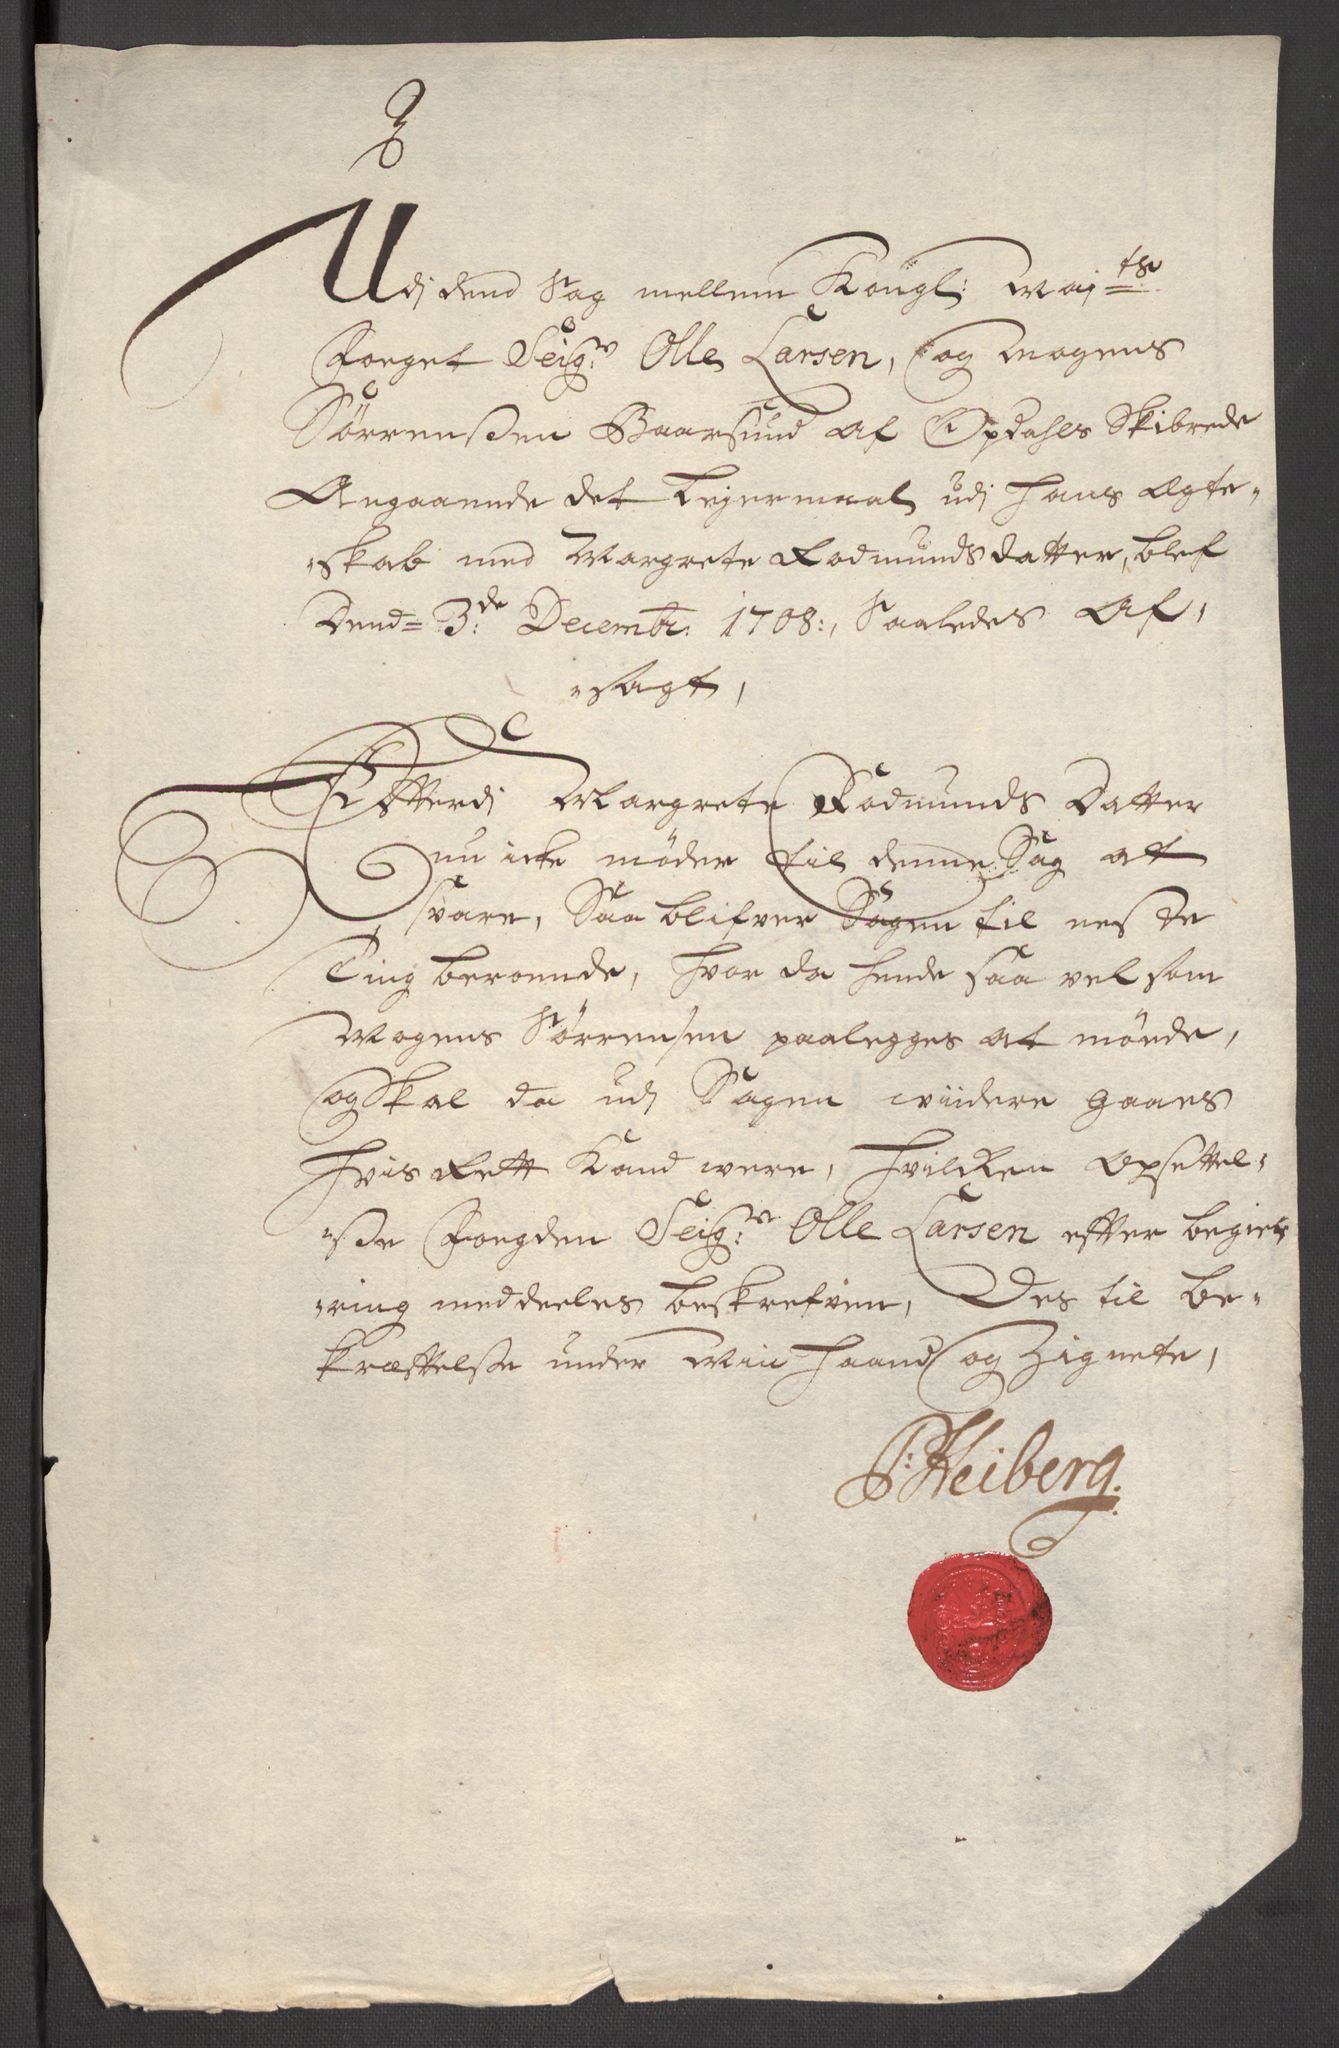 Udj dend Sag mellem Kongl: Maj:ts
Foeget Seigr: Olle Larsen, og Mogens
Sørrenßen Baarsund af Opdahls Skibrede
Angaaende det Leyermaal udj hans Ægte-
skab med Margrete Rodmundsdatter, blef
Dend 3:de Decembr: 1708:, Saaledes Af-
sagt,
Efftterdj Margrete Rodmunds Datter
nu icke møder til denne Sag at
svare, Saa blifver Sagen til neste
Ting beroende, hvor da hende saa vel som
Mogens Sørrensen paalegges at møede,
og skal da udj Sagen wiidere gaaes
hvis Rett Kand were, hvilcken Opsettel-
ße Foegden Seigr: Olle Larsen effter begier-
ring meddeeles beskrefven, Des til be-
kræfftelße under Min haand og Zignete,
P: Heiberg.